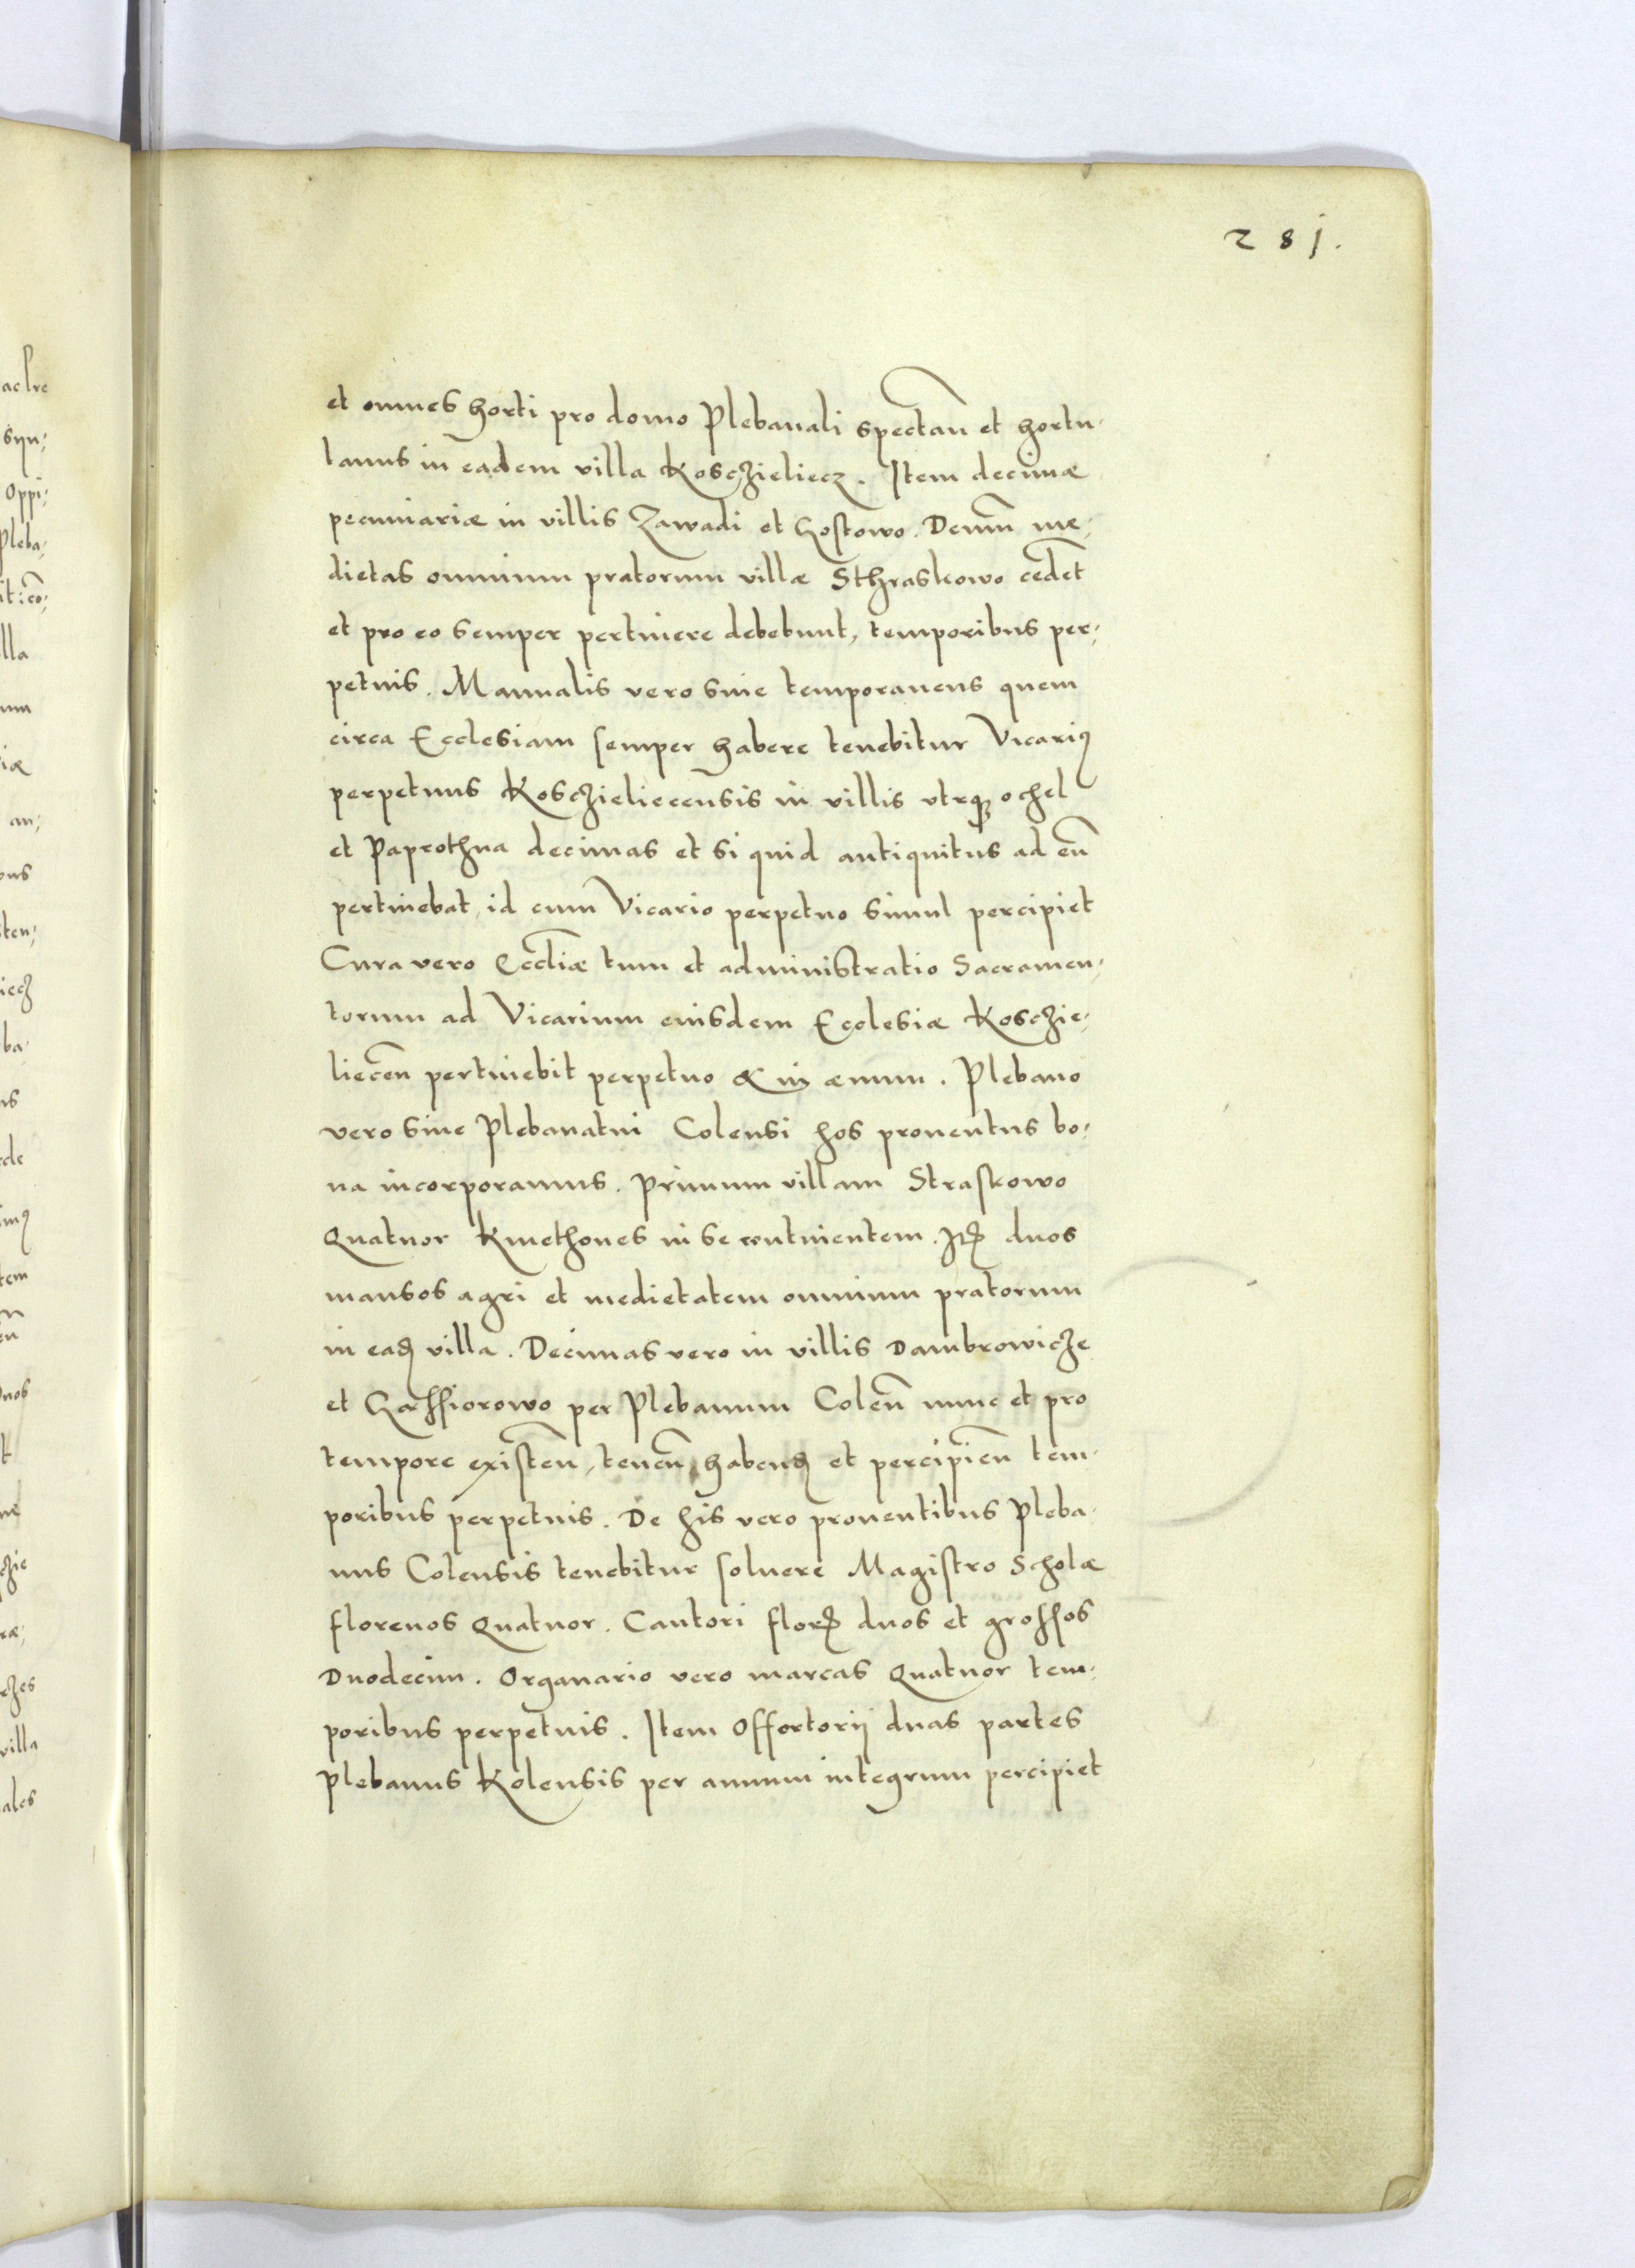 281.
et omnes horti pro domo Plebanali spectan̄ et hortu-
lanus in eadem villa Kosczieliecz. Item decimæ
pecuniariæ in villis Zawadi et Gostowo. Demū me-
dietas omnium pratorum villæ Sthraskowo cedet
et pro eo semper pertinere debebunt, temporibus per-
petuis. Manualis vero siue temporaneus quem
circa Ecclesiam semper habere tenebitur Vicariꝰ
perpetuus Kosczieliecensis in villis vtrqꝫ ochel
et Paprothna decimas et si quid antiquitus ad eū
pertinebat, id cum Vicario perpetuo simul percipiet
Cura vero Eccłiæ tum et administratio Sacramen-
torum ad Vicarium eiusdem Ecclesiæ Kosczie-
liecen̄ pertinebit perpetuo & in æuum. Plebano
vero siue Plebanatui Colensi hos prouentus bo-
na incorporamus. Primum villam Straskowo
Quatuor Kmethones in se continentem. Itē duos
mansos agri et medietatem omnium pratorum
in eadē villa. Decimas vero in villis Dambrowicze
et Gassiorowo per Plebanum Colen̄ nunc et pro
tempore existen̄, tenen̄, habend̄ et percipien̄ tem-
poribus perpetuis. De his vero prouentibus Pleba-
nus Colensis tenebitur soluere Magistro Scholæ
florenos Quatuor. Cantori florē duos et grossos
Duodecim. Organario vero marcas Quatuor tem-
poribus perpetuis. Item Offertorij duas partes
Plebanus Kolensis per annum integrum percipiet